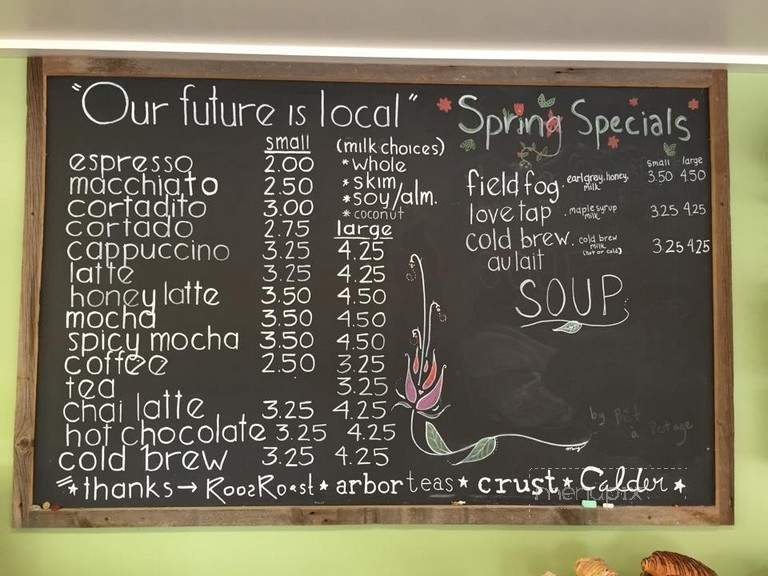 "Our future is local"
small
(milk choices)
espresso 2.00 *whole
macchiato 2.50 *skim
cortadito 3.00 *soy/alm.
*coconut
cortado 2.75 large
cappuccino 3.25 4.25
latte 3.25 4.25
honey latte 3.50 4.50
mocha 3.50 4.50
spicy mocha 3.50 4.50
coffee 2.50 3.25
tea 3.25
chai latte 3.25 4.25
hot chocolate 3.25 4.25
cold brew 3.25 4.25
Spring Specials
small large
field fog. earl grey, honey, milk 3.50 4.50
love tap . maple syrup milk 3.25 4.25
cold brew . cold brew milk (hot or cold) 3.25 4.25
au lait
SOUP
by Pot
à Potage
*thanks → RoosRoast * arbor teas * crust * Calder *
menupix